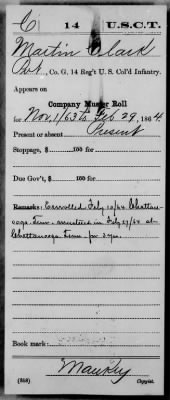 C | 14 | U.S.C.T.
Martin Clark
Pvt., Co. G, 14 Reg't U. S. Col'd Infantry.
Appears on
Company Muster Roll
for Nov. 1/63 to Feb 29, 1864.
Present or absent Present
Stoppage, $ 100 for
Due Gov't, $ 100 for
Remarks: Enrolled Feby 10/64 Chattan-
ooga, Tenn. mustered in Feby 27/64 at
Chattanooga Tenn for 3 yrs.
Book mark:
(358)
Copyist.